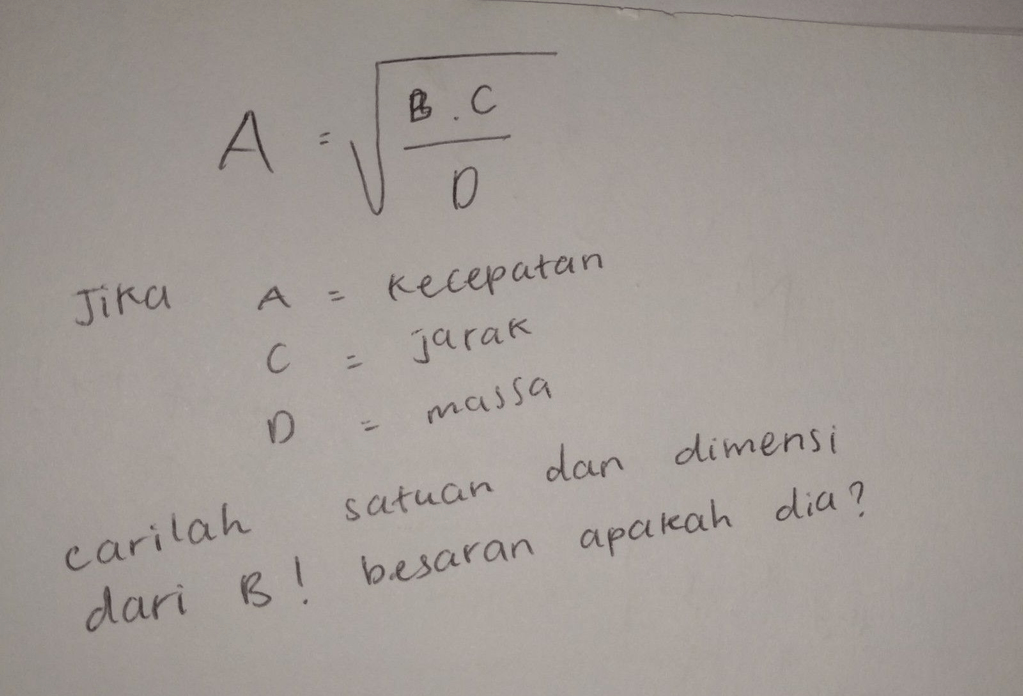 A = √ B . C / D
Jika A = Kecepatan
C = jarak
D = massa
carilah satuan dan dimensi
dari B! besaran apakah dia?